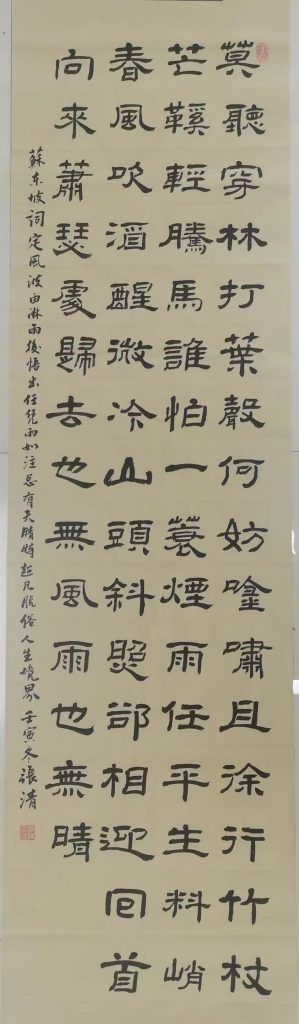 莫聽穿林打葉聲何妨唫嘯且徐行竹杖
芒鞵輕騰馬誰怕一蓑煙雨任平生料峭
春風吹酒醒微冷山頭斜照卻相迎回首
向來蕭瑟處歸去也無風雨也無晴
蘇东坡詞定風波由淋雨後悟出任凭雨如注总有天晴時超凡脫俗人生境界 壬寅冬張清